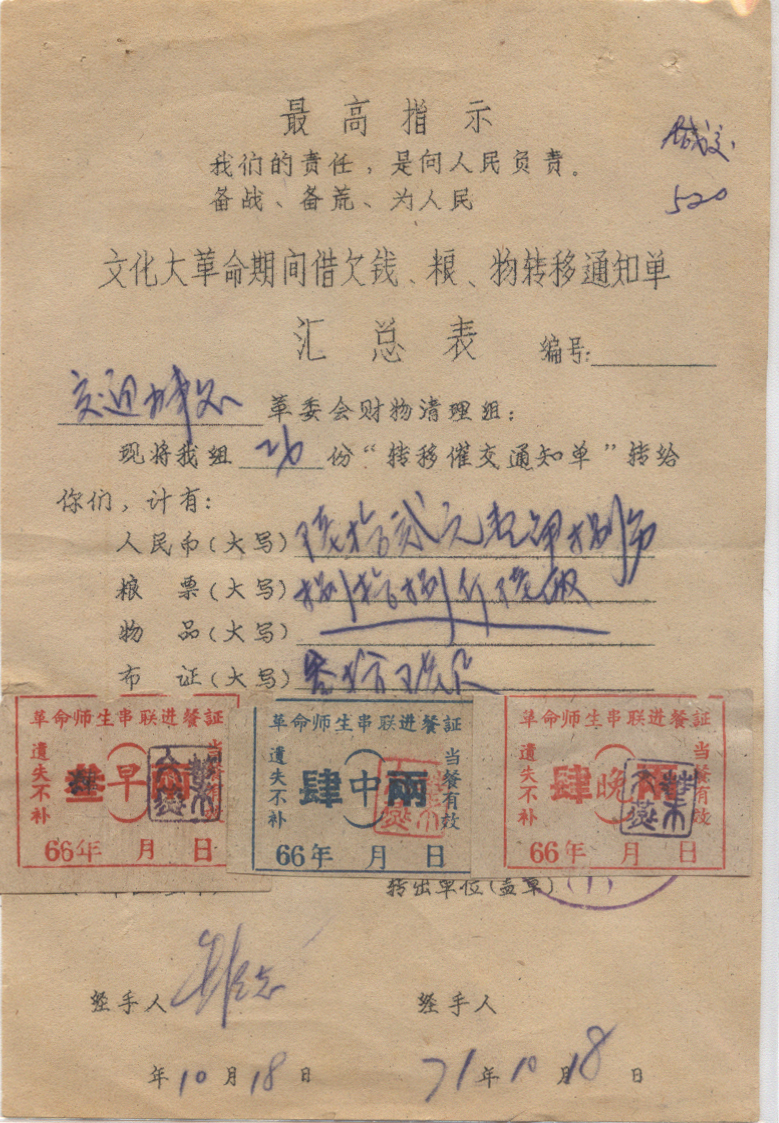 最高指示
我们的责任，是向人民负责。
备战、备荒、为人民
520
文化大革命期间借欠钱、粮、物转移通知单
汇总表 编号:
革委会财物清理组：
现将我组 26 份“转移催交通知单”转给
你们，计有：
人民币(大写) 陆拾贰元
粮票(大写) 捌拾捌斤陆
物品(大写)
布证(大写) 叁拾
革命师生串联进餐証
遗失不补
叁早兩
当餐有效
66年 月 日
革命师生串联进餐証
遗失不补
肆中兩
当餐有效
66年 月 日
革命师生串联进餐証
遗失不补
肆晚兩
当餐有效
66年 月 日
转出单位(盖章)
经手人
经手人
年10月18日
71年10月18日